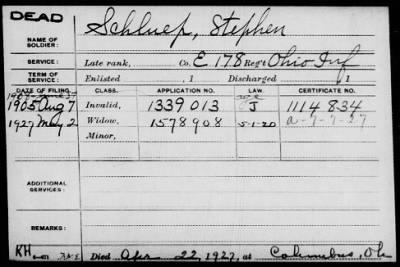 DEAD
NAME OF SOLDIER: Schluep, Stephen
SERVICE: Late rank, Co. E 178 Reg't Ohio Inf
TERM OF SERVICE: Enlisted , 1 Discharged , 1
DATE OF FILING CLASS. APPLICATION NO. LAW. CERTIFICATE NO.
1905 Aug 7 Invalid, 1339013 J 1114834
1927 May 2 Widow, 1578908 5-1-20 a-7-7-27
Minor,
ADDITIONAL SERVICES:
REMARKS:
KH Died Apr 22, 1927, at Columbus, Oh